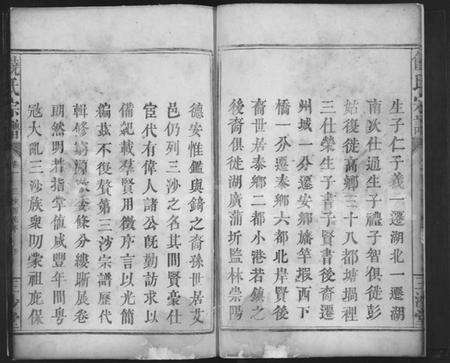 生子仁子義一遷湖北一遷湖
南次仕通生子禮子智俱徙彭
姑復徙高鄉三十八都塘裯裡
三仕榮生子書子賢書後裔遷
州城一分遷安鄉旛竿堰西下
橋一分遷泰鄉六都北岸賢後
裔世居泰鄉二都小港若鎮之
後裔俱徙湖廣蒲圻監林崇陽
德安惟鑑與鑄之裔孫世居艾
邑仍列三沙之名其間賢豪仕
宦代有偉人諸公既勤訪求以
備記載羣賢用徵序言以光簡
編茲不復贅第三沙宗譜歷代
輯修窮源條分縷晰展卷
瞭然明若指掌值咸豐年間粵
寇大亂三沙族衆叨蒙祖庇保
氏宗譜